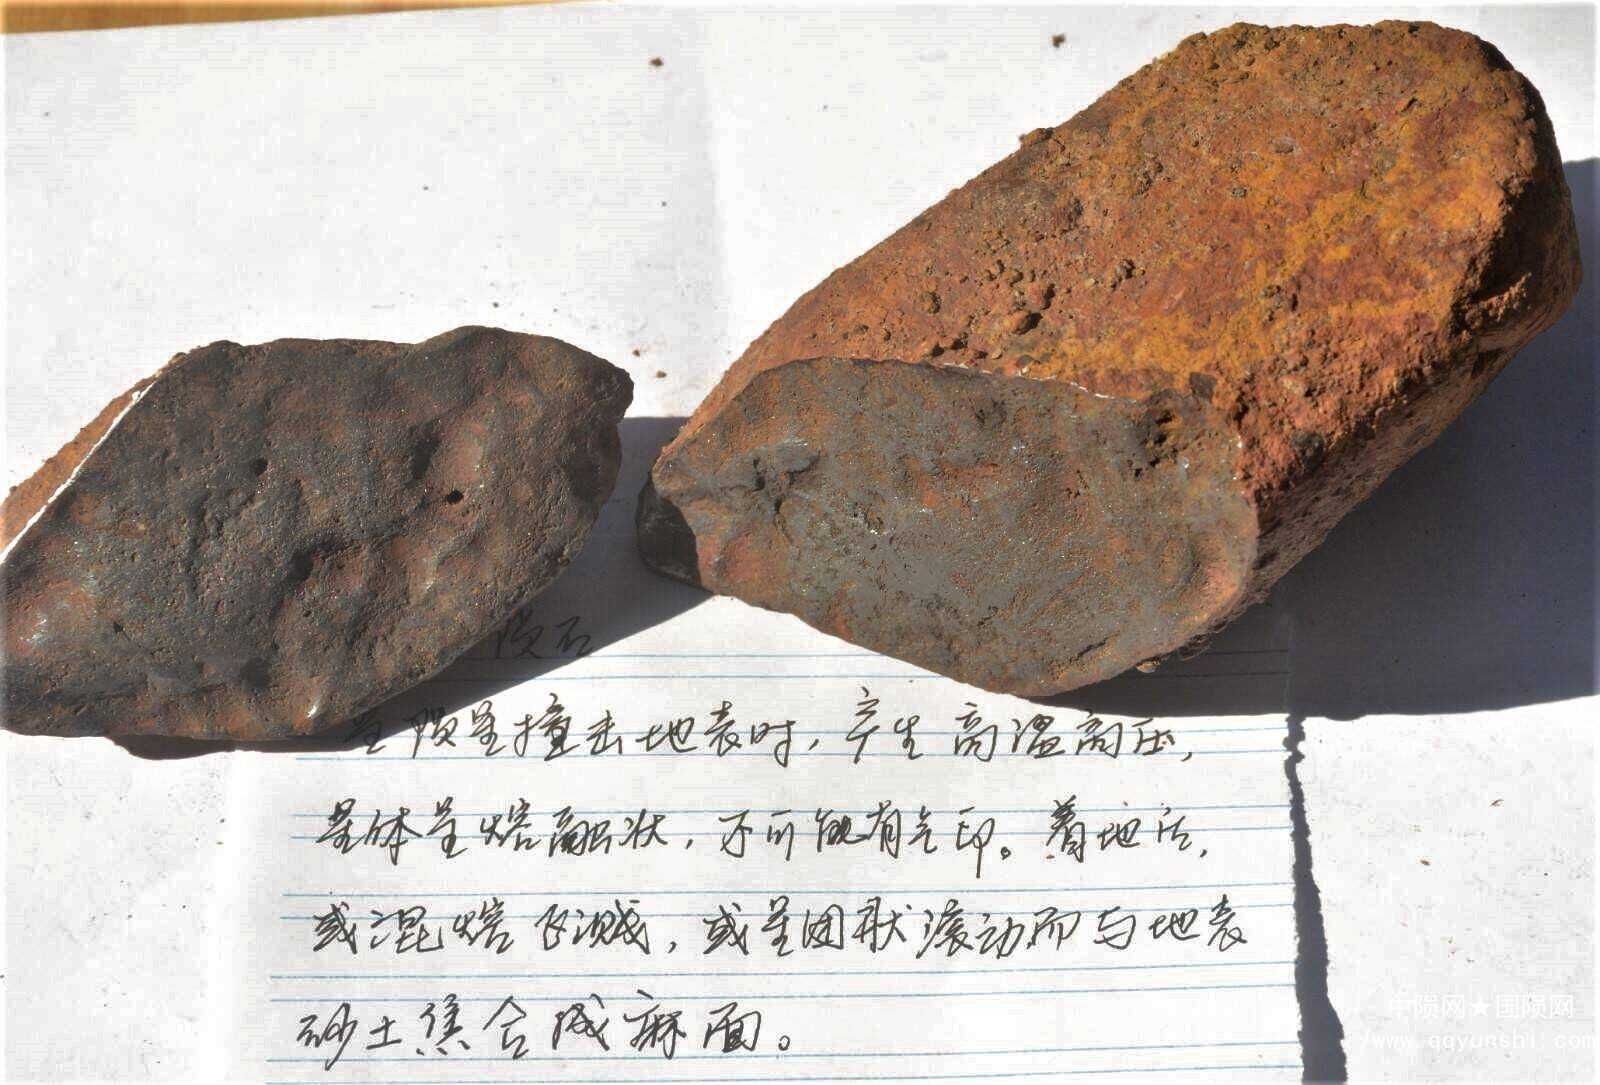 陨石
陨星撞击地表时，产生高温高压，
星体呈熔融状，不可能有气印。着地后，
或混熔飞溅，或呈团状滚动而与地表
砂土焦合成麻面。
中陨网★国陨网
www.qqyunshi.com